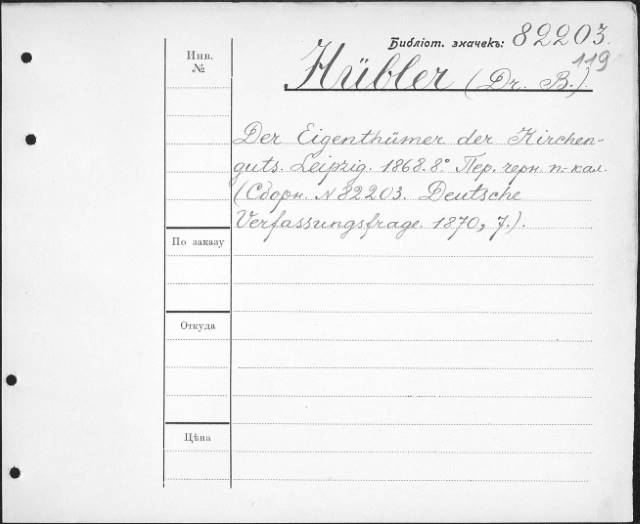 Библіот. значекъ: 82203.
119
Инв.
№
Hübler (Dr. B.)
Der Eigenthümer der Kirchen-
guts. Leipzig. 1868. 8.° Пер. черн. п-кал.
(Сборн. № 82203. Deutsche
Verfassungsfrage. 1870, 7.).
По заказу
Откуда
Цѣна